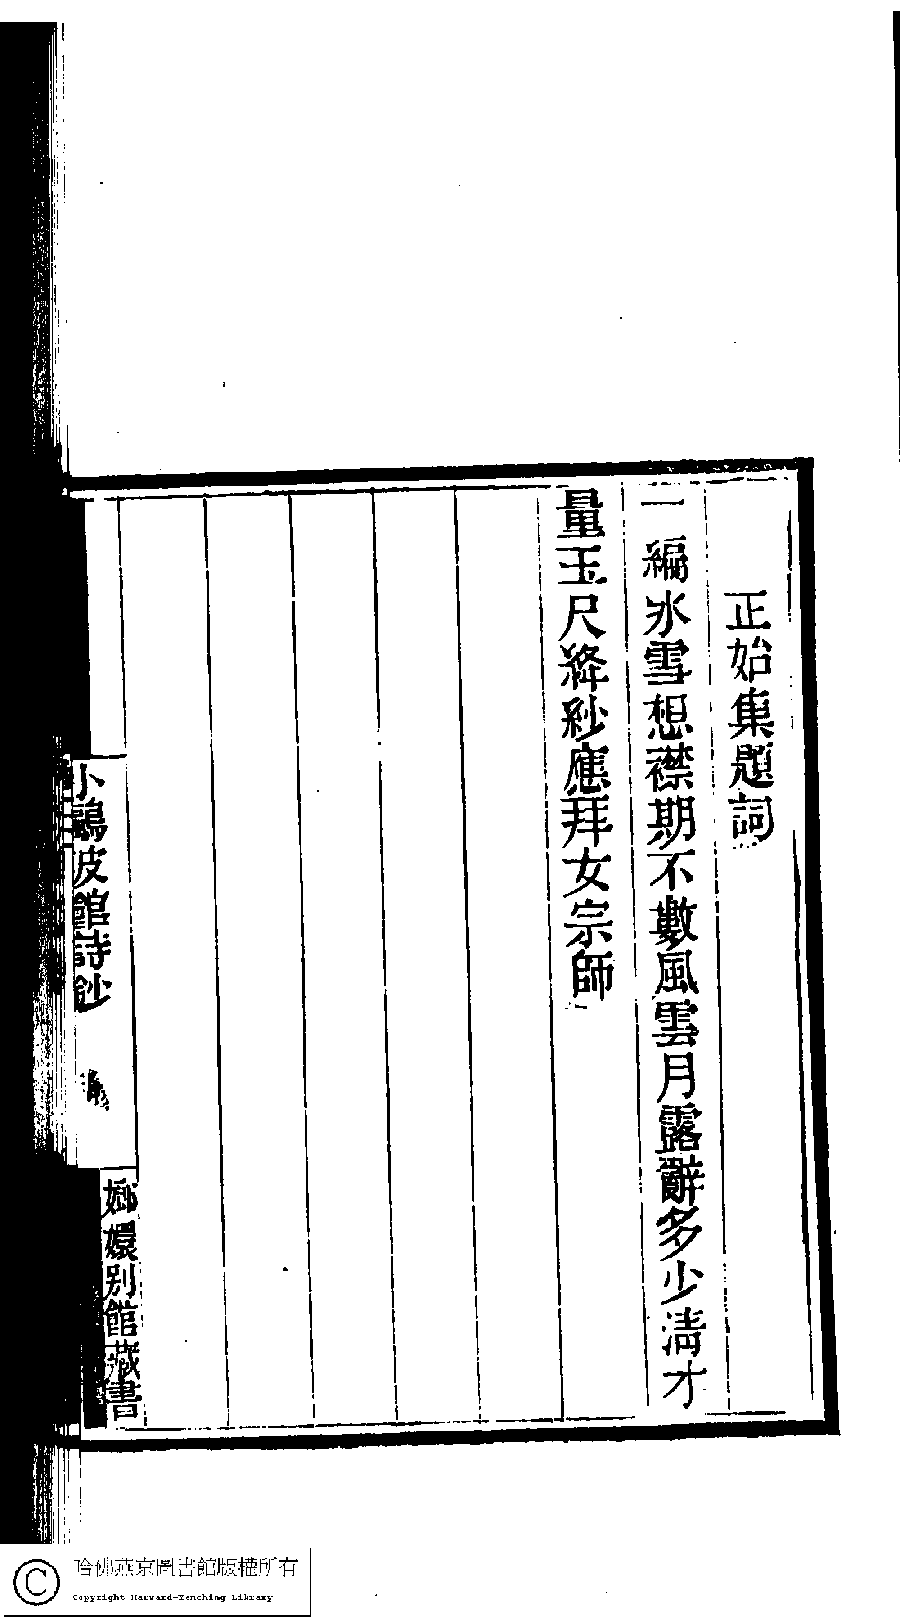 正始集題詞
一編氷雪想襟期不數風雲月露辭多少清才
量玉尺絳紗應拜女宗師
小鷗波館詩鈔
嫏嬛別館藏書
哈佛燕京圖書館版權所有
Copyright Harvard-Yenching Library